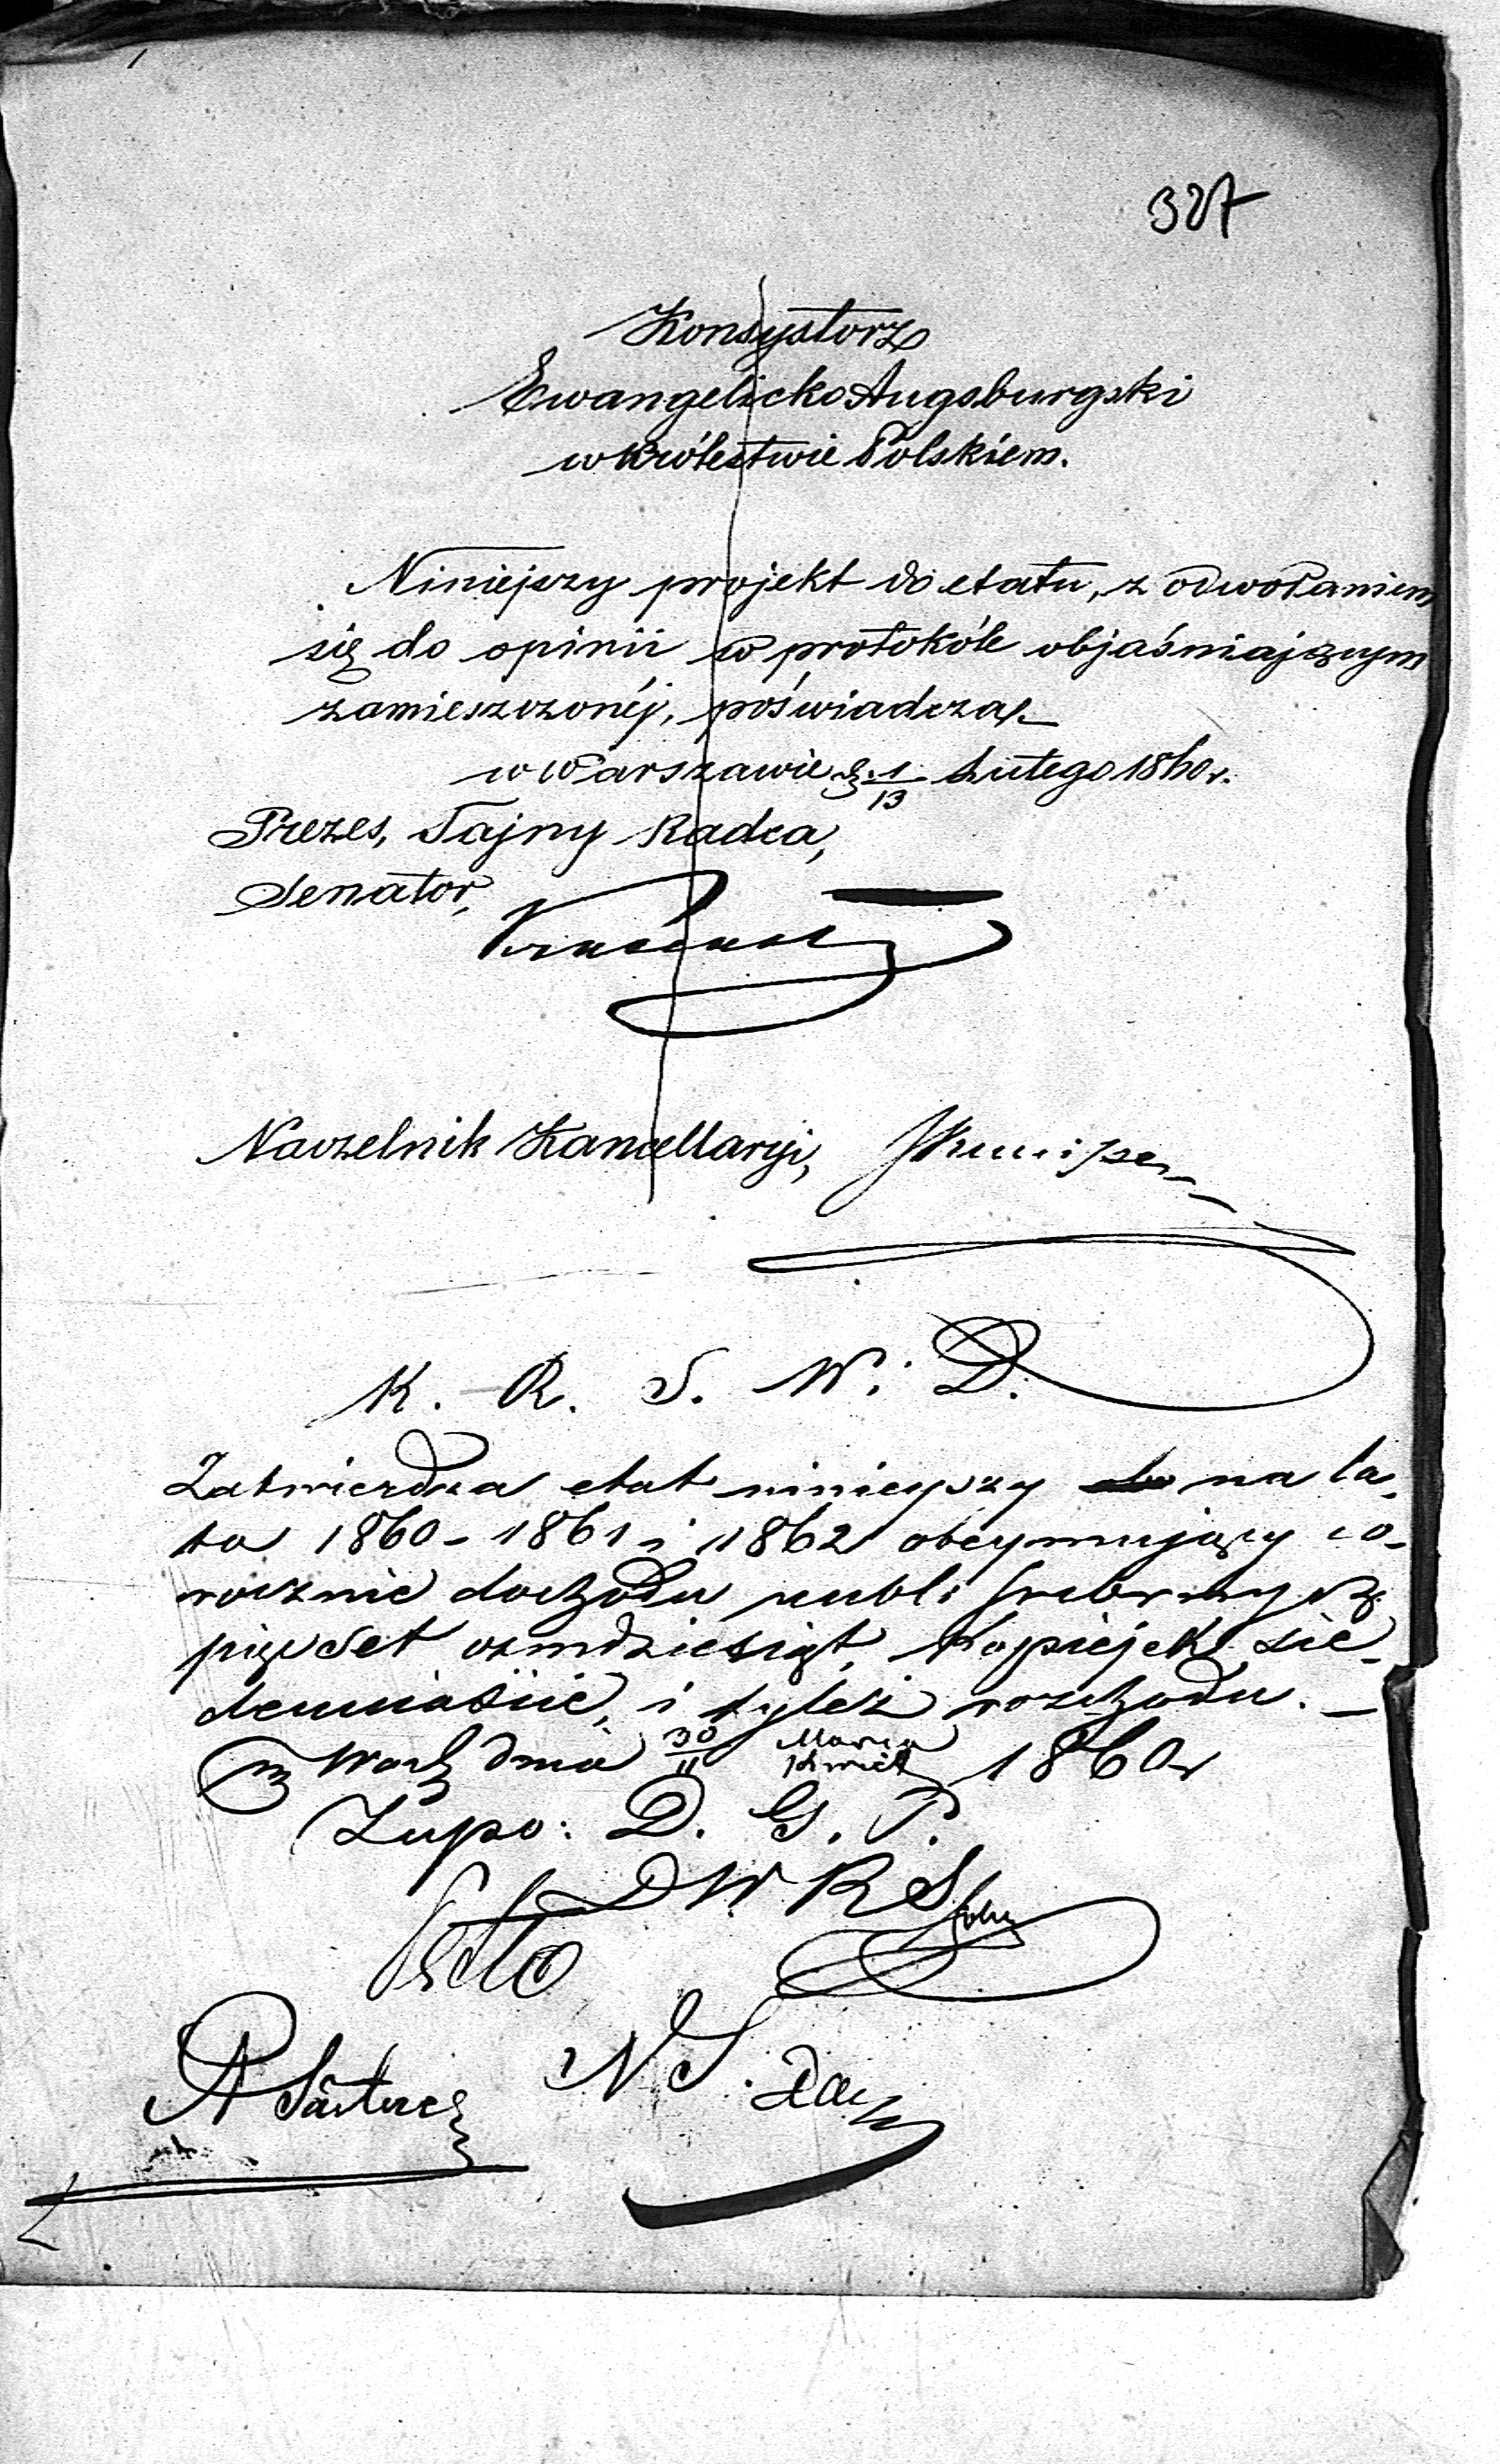 327
Konsystorz
Ewangelicko Augsburgski
w Królestwie Polskiem.
Niniejszy projekt do etatu, z odwołaniem
się do opinii w protokóle objaśniającym
zamieszczonéj, poświadcza.
w Warszawie d. 1/13 Lutego 1860 r.
Prezes, Tajny Radca,
Senator,
Naczelnik Kancellaryi,
K. R. S. W. D.
Zatwierdza etat ninieyszy na la-
ta 1860 - 1861 i 1862 obeymujący co-
rocznie dochodu rubli srebrnych
pięćset ośmdziesiąt, kopiejek sie-
demnaście, i tyleż rozchodu. —
w Warsz dnia 30/11 Marca/Kwiet 1860 r
Zupo: D. G. P.
D W R S
N S.